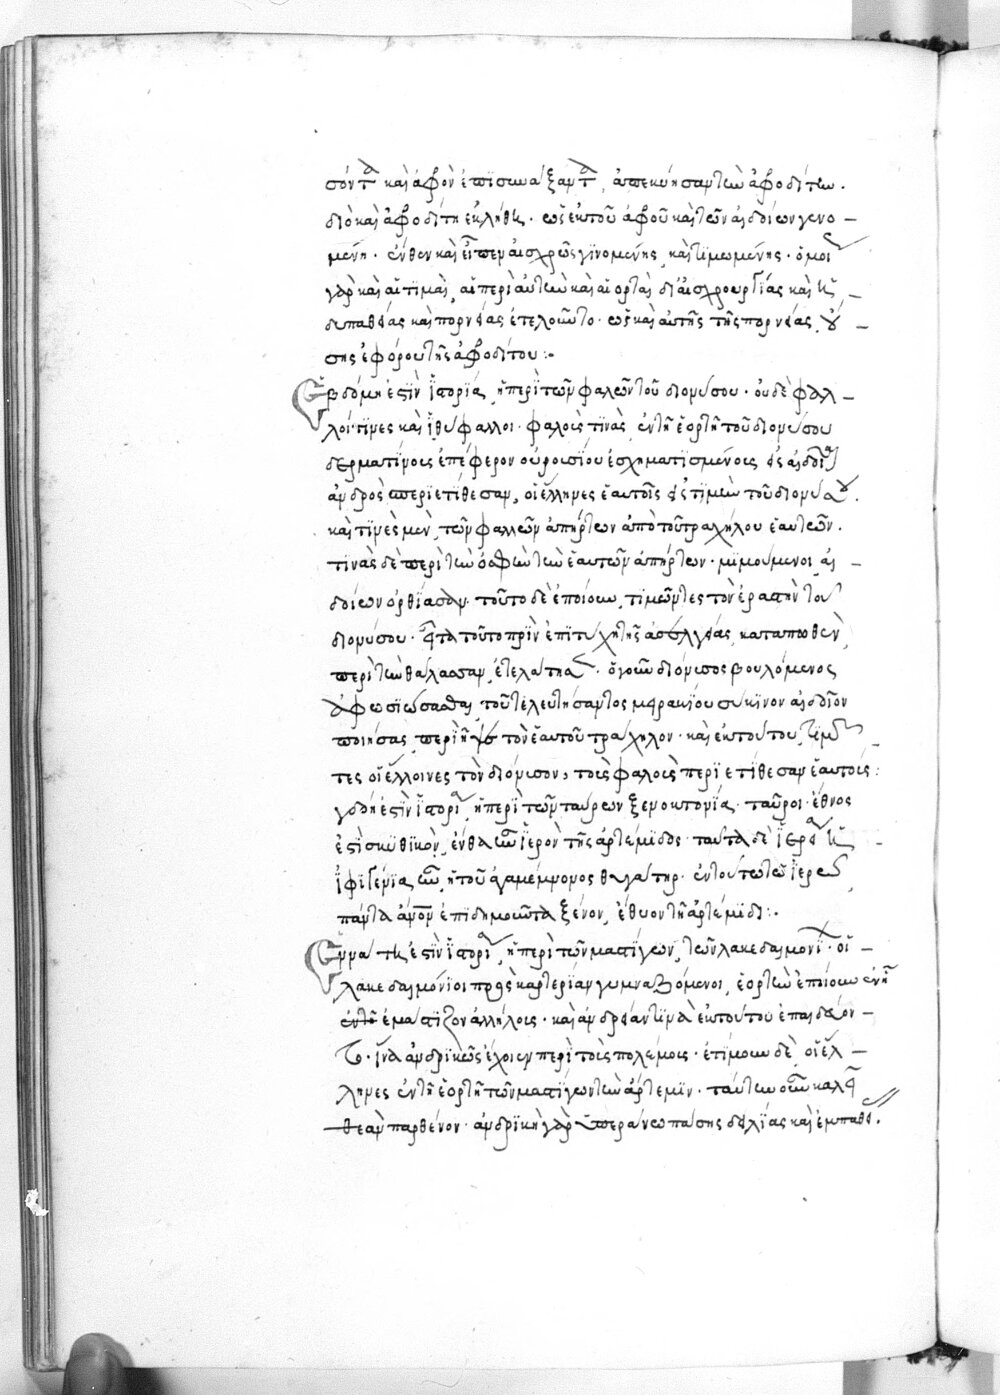 σόντα καὶ ἀφρὸν ἐπισυναξαντα, ἀπεκύησαν τὴν ἀφροδίτην.
διὸ καὶ ἀφροδίτη ἐκλήθη. ὡς ἐκ τοῦ ἀφροῦ καὶ τῶν αἰδοίων γενο
μένη. ἔνθεν καὶ αἰσχρῶς γινομένης καὶ τιμωμένης. ὁμοί
γὰρ καὶ αἱ τιμαὶ, αἱ περὶ αὐτὴν καὶ αἱ ορταὶ δι' αἰσχρουργίας καὶ
δυπαθείας καὶ πορνείας ἐτελοῦντο. ὡς καὶ αὐτῆς τῆς πορνείας, οὔ
σης ἐφόρου τῆς ἀφροδίτου:
Ἑβδόμη ἐστὶν ἱστορία, ἡ περὶ τῶν φαλῶν τοῦ διονύσου. οὐδὲ φαλ
λοί τινες καὶ ἰθυφαλλοι. φαλοὺς τινὰς ἐν τῇ ἑορτῇ τοῦ διονύσου
δερματίνους ἐπέφερον ἐσχηματισμένους εἰς αἰδοῖα
ἀνδρὸς περιετίθεσαν, οἱ ἕλληνες ἑαυτοῖς εἰς τιμὴν τοῦ διονύσου.
καὶ τινὲς μὲν τῶν φαλλῶν ἀπήρτων ἀπὸ τοῦ τραχήλου ἑαυτῶν.
τινὰς δὲ περὶ τὴν ὀσφὺν τὴν ἑαυτῶν ἀπήρτων. μιμούμενοι αἰ
δοίων ὀρθίασιν. τοῦτο δὲ ἐποίουν, τιμῶντες τὸν ἐραστὴν του
διονύσου. τοῦτο πρὶν ἐπιτυχῆ τῆς ἀσελγείας, καταπωθὲν
περὶ τὴν θάλασσαν, ἐτελεύτησε. ὁ γοῦν διόνυσος βουλόμενος
ἀφωσιώσασθαι τοῦ τελευτήσαντος μειρακίου συκινον αἰδοῖον
ποιήσας περιῆψε τὸν ἑαυτοῦ τράχηλον. καὶ ἐκ τούτου, τιμῶν
τες οἱ ἕλληνες τὸν διόνυσον, τοὺς φαλοὺς περιετίθεσαν ἑαυτοῖς:
γδόη ἐστὶν ἱστορία, ἡ περὶ τῶν ταύρων ξενοκτονία. ταῦροι ἔθνος
ἐστὶ σκυθικὸν, ἔνθα ἦν ἱερὸν τῆς ἀρτέμιδος. ταύτα δὲ ἱέρεια
ἰφιγένια ἦν, ἡ τοῦ ἀγαμέμνονος θυγάτηρ. ἐν τούτω τῶ ἱερῶ
πάντα ἄνον ἐπιδημοῦντα ξένον, ἔθυον τῇ ἀρτέμιδι:
Ἐννάτη ἐστὶν ἱστορία, ἡ περὶ τῶν μαστίγων, τῶν λακεδαιμονί. οἱ
λακεδαιμόνιοι πρὸς καρτερίαν γυμναζόμενοι, ἑορτὴν ἐποίουν ἐν ᾗ
ἐμαστιζον ἀλλήλους. καὶ ἀνδρείαν τινὰ ἐκ τούτου ἐπαιδεύον
το. ἵνα ἀνδρικῶς ἔχοιεν περὶ τοὺς πολέμους. ἐτίμουν δὲ οἱ ἕλ
ληνες ἐν τῇ ἑορτῇ τῶν μαστίγων τὴν ἄρτεμιν. ταύτην οὖν καλεῖ
θεὰν παρθένον. ἀνδρικὴ γὰρ ὑπεράνω πάσης δειλίας καὶ ἐμπαθεί.